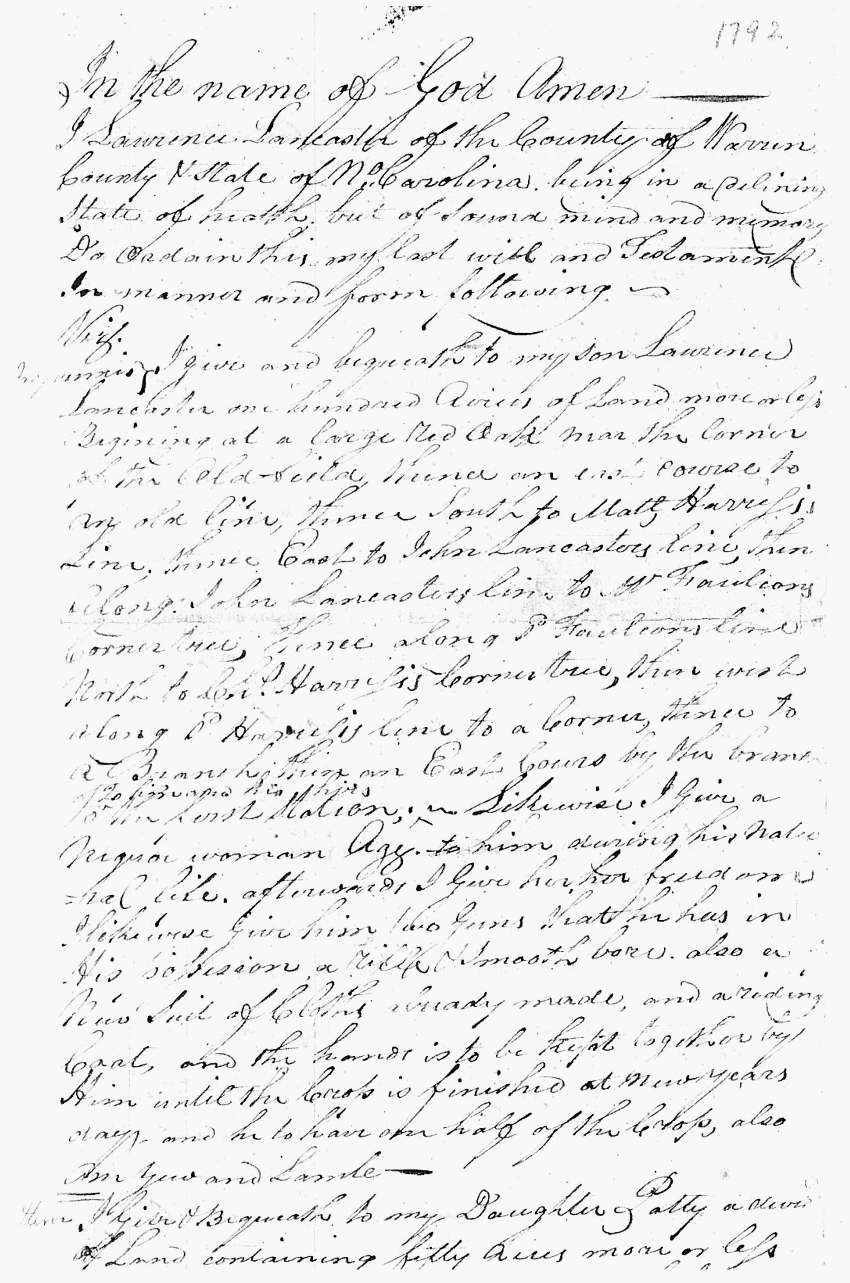 1792
In the name of God Amen
I Lawrence Lancaster of the County of Warren
County & State of No Carolina. being in a delining
State of health. but of Sound mind and memory
Do Ordain this my last will and Testament
In manner and form following
Viz.
I give and bequeath to my son Lawrence
Lancaster one hundred Acres of Land more or less
Begining at a large Red Oak near the Corner
of the Old field, thence an east course to
my old line, thence South to Matt Harriss's
Line. thence East to John Lancasters line, then
along John Lancasters line to Mr Faulcons
Corner tree, thence along Faulcons line
North to Harriss's Corner tree, then west
along Harriss's line to a Corner, thence to
a Branch, then an East Cours by the branch
to him and his heirs
To the first Station, Likewise I Give a
Negroe woman Agg. to him during his Natu
=ral life. afterwards I Give her, her freedom
I likewise Give him two Guns that he has in
His possesion a rifle & Smooth bore. also a
New Suit of Cloths already made, and a riding
Coat, and the hands is to be kept together by
Him until the Crop is finished at New years
day, and he to have one half of the Crop, also
An Yew and Lamb
Item I Give & Bequeath to my Daughter Patty a
of Land containing fifty Acres more or less